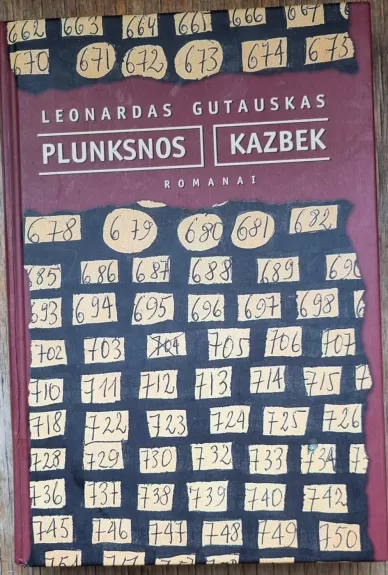 662 663 664 661 666 667
670 671 672 673 674 675
LEONARDAS GUTAUSKAS
PLUNKSNOS KAZBEK
ROMANAI
678 679 680 681 682
685 686 687 688 689 690
693 694 695 696 697 698
702 703 704 705 706 707
710 711 712 713 714 715
718 722 723 724 725 726
728 729 730 732 733 734
736 737 738 739 740 742
745 746 747 748 749 750